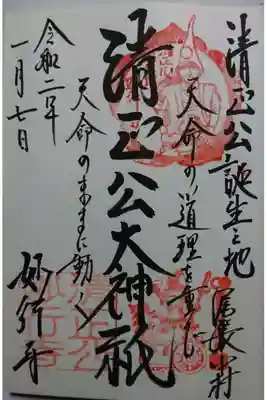 清正公誕生之地
天命の道理を重んじ
清正公大神祇
天命のままに動く
令和二年
一月七日
妙行寺